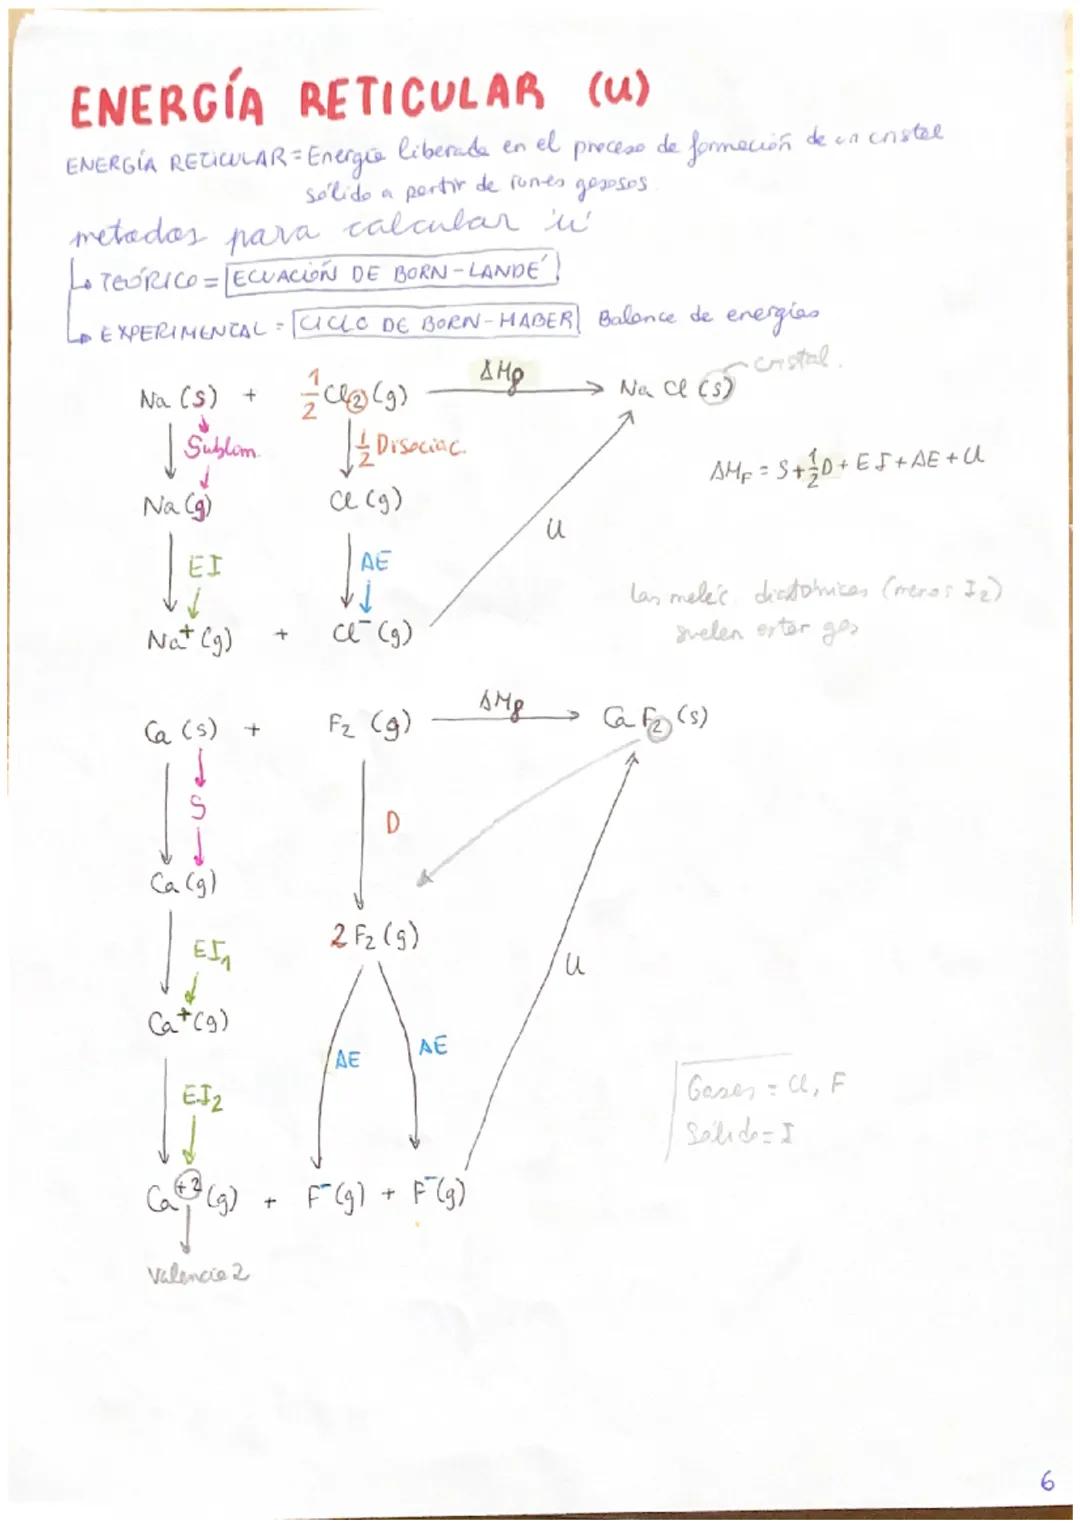 ENERGÍA RETICULAR (U)
ENERGÍA RETICULAR = Energía liberada en el proceso de formación de un cristal
sólido a partir de iones gaseosos.
metodos para calcular 'u'
↳ TEÓRICO = ECUACIÓN DE BORN-LANDÉ
↳ EXPERIMENTAL = CICLO DE BORN-HABER Balance de energías
Na (s) + 1/2 Cl2 (g) ΔHf → Na Cl (s) cristal.
Sublim. 1/2 Disociac.
ΔHF = S + 1/2 D + EI + AE + U
Na (g) Cl (g)
U
EI AE
Las moléc. diatómicas (menos I2)
suelen estar gas
Na+ (g) + Cl- (g)
Ca (s) + F2 (g) ΔHf → Ca F2 (s)
S D
Ca (g)
2 F2 (g)
EI1 U
Ca+ (g)
AE AE
EI2
Gases = Cl, F
Sólido = I
Ca+2 (g) + F- (g) + F- (g)
Valencia 2
6